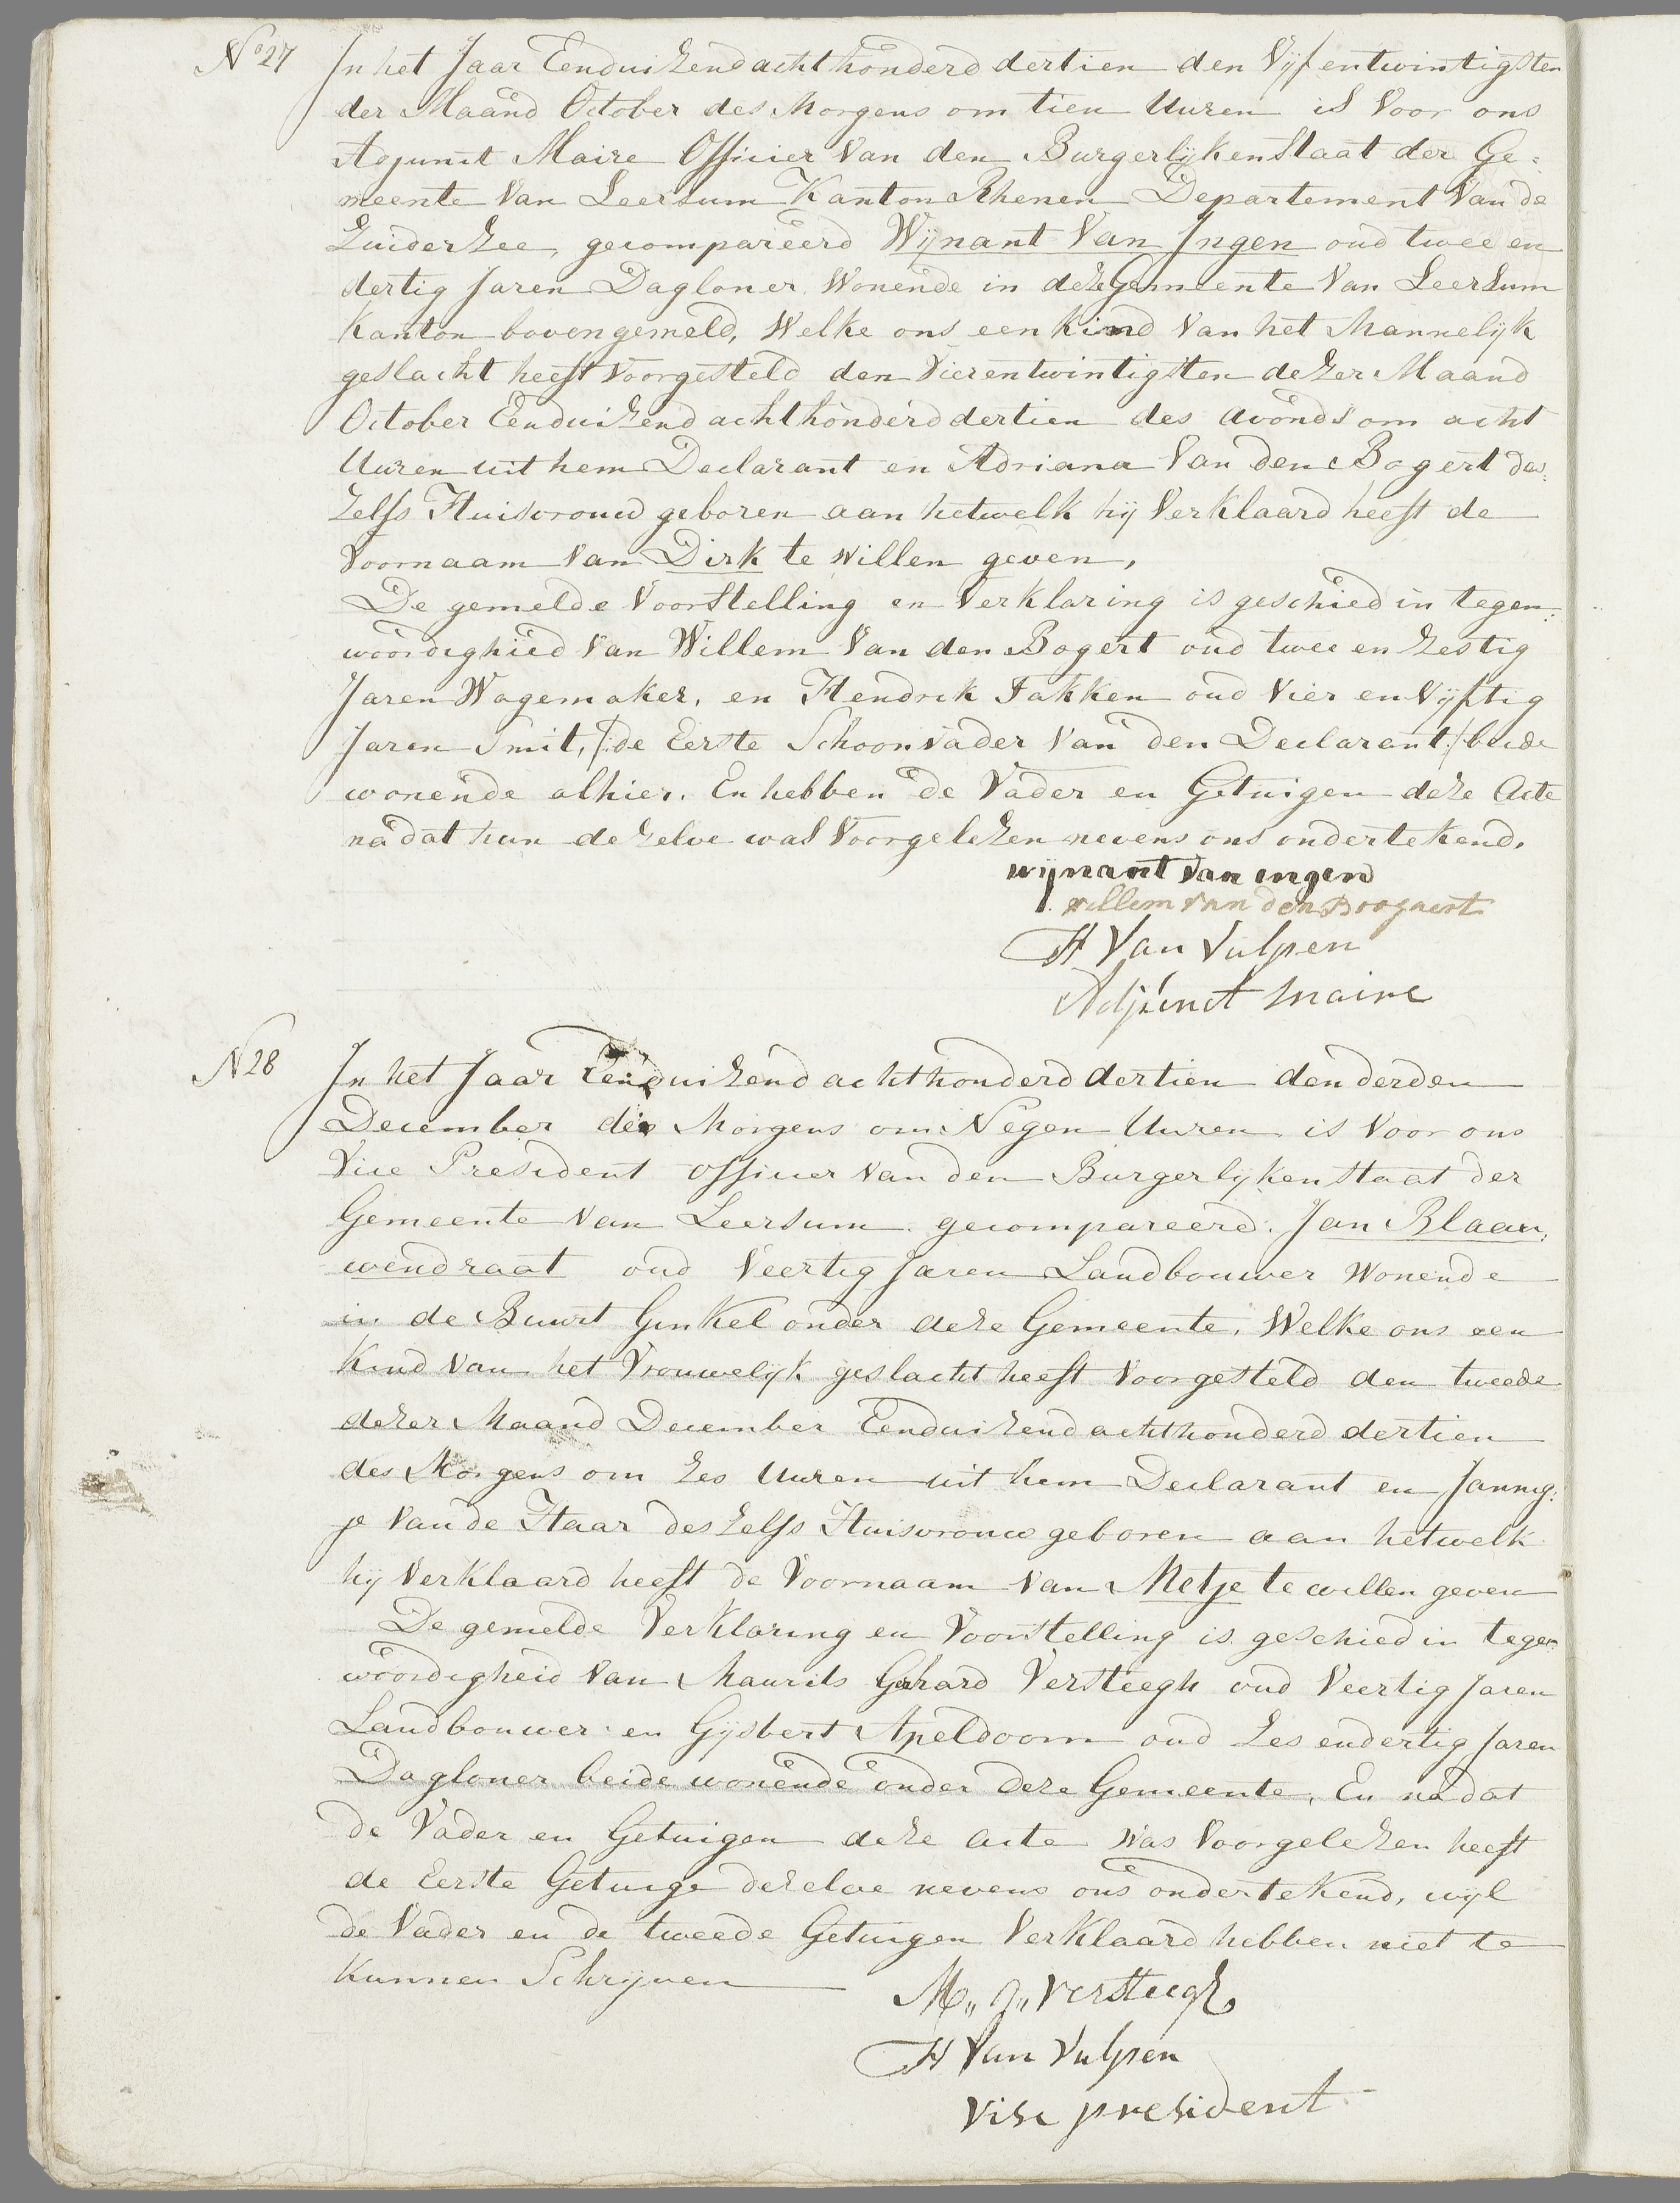 No 27
In het Jaar Eenduizend achthonderd dertien den Vijfentwintigsten
der Maand October des Morgens om tien Uuren is Voor ons
Adjunct Maire Officier Van den Burgerlijken Staat der Ge=
meente Van Leersum Kanton Rhenen Departement Van de
Zuider Zee, gecompareerd Wijnant Van Ingen oud twee en
dertig Jaren Dagloner Wonende in deze Gemeente Van Leersum
Kanton bovengemeld, Welke ons een kind Van het Mannelijk
geslacht heeft Voorgesteld den Vierentwintigsten dezer Maand
October Eenduizend achthonderd dertien des Avonds om acht
Uuren uit hem Declarant en Adriana Van den Bogert des=
zelfs Huisvrouw geboren aan hetwelk hij Verklaard heeft de
Voornaam Van Dirk te willen geven,
De gemelde Voorstelling en Verklaring is geschied in tegen=
woordighied Van Willem Van den Bogert oud twee en zestig
Jaren Wagemaker, en Hendrik Takken oud Vier en Vijftig
Jaren Smit, /:de Eerste Schoonvader Van den Declarant:/ beide
wonende alhier. En hebben de Vader en Getuigen deze Acte
na dat hun dezelve was Voorgelezen nevens ons ondertekend.
wijnant van ingen
willem van den Boogaert
H Van Vulpen
Adjunct Maire
N 28
In het Jaar Eenduizend achthonderd dertien den derden
December des Morgens om Negen Uuren is Voor ons
Vice President Officier Van den Burgerlijken Staat der
Gemeente Van Leersum gecompareerd. Jan Blaau=
wendraat oud Veertig Jaren Landbouwer Wonende
in de Buurt Ginkel onder deze Gemeente. Welke ons een
Kind Van het Vrouwelijk geslacht heeft Voorgesteld den tweede
dezer Maand December Eenduizend achthonderd dertien
des Morgens om zes Uuren uit hem Declarant en Jannig=
je Van de Haar deszelfs Huisvrouw geboren aan hetwelk
hij Verklaard heeft de Voornaam Van Metje te willen geven
De gemelde Verklaring en Voorstelling is geschied in tegen=
woordigheid Van Maurits Gerhard Versteegh oud Veertig Jaren
Landbouwer en Gijsbert Apeldoorn oud Zes endertig Jaren
Dagloner beide wonende onder deze Gemeente. En na dat
de Vader en Getuigen deze Acte was Voorgelezen heeft
de Eerste Getuige dezelve nevens ons ondertekend, wijl
de Vader en de tweede Getuigen Verklaard hebben niet te
Kunnen Schrijven
M,, G,, Versteegh
H Van Vulpen
Vise president